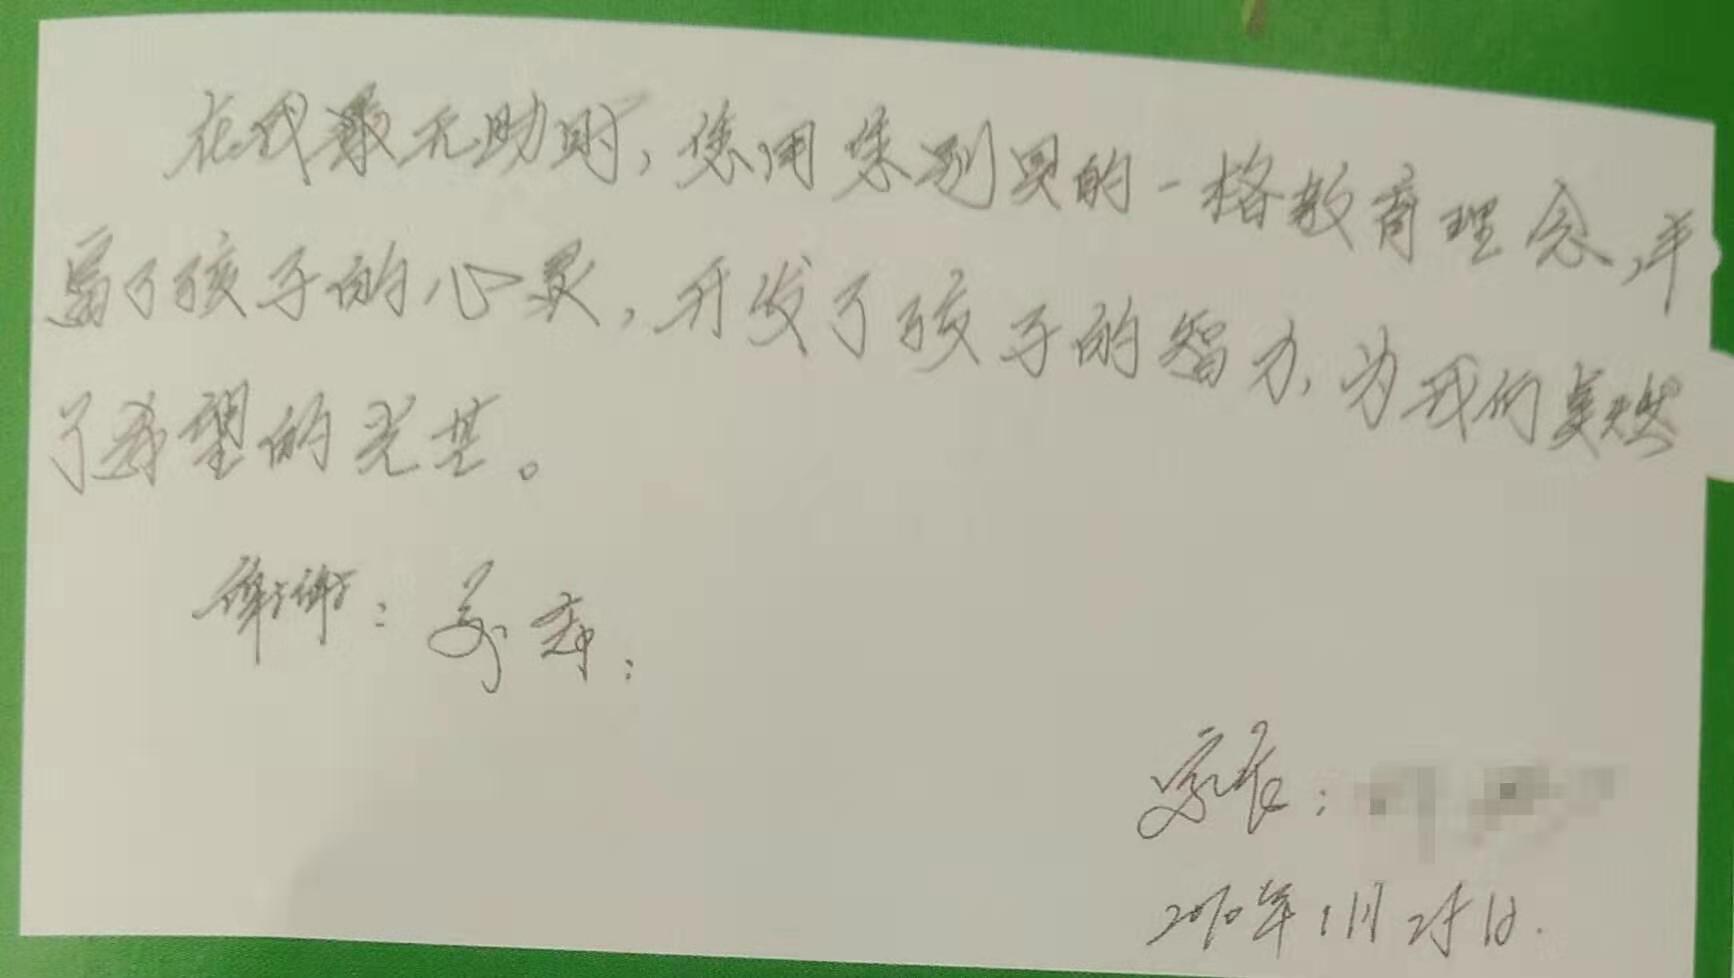 在我最无助时,您用您别具的一格教育理念,丰
富了孩子的心灵,开发了孩子的智力,为我们点燃
了希望的光芒。
谢谢:
家长:
2020年1月25日.